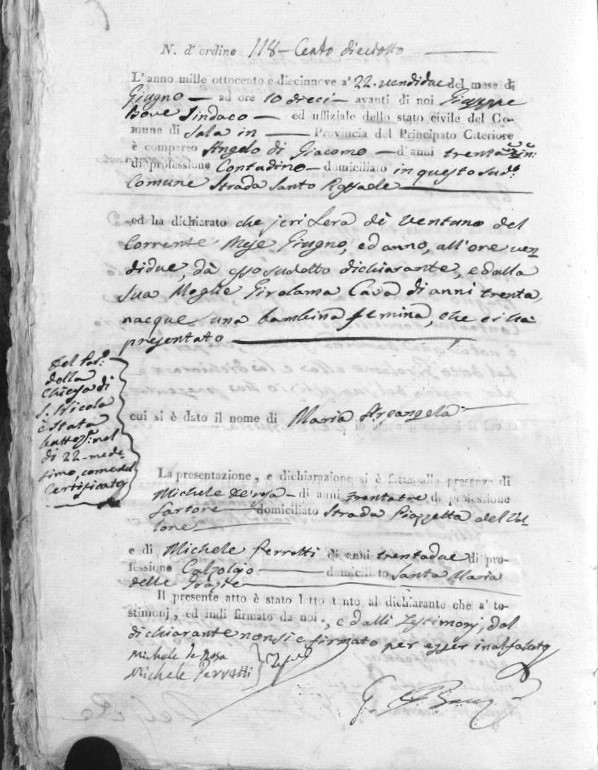 N. d'ordine 118 - Cento dieciotto
L'anno mille ottocento e diecinnove a' 22. ventidue del mese di
Giugno — ad ore 10 dieci — avanti di noi Giuseppe
Bove Sindaco — ed uffiziale dello stato civile del Co-
mune di Sala in — Provincia del Principato Citeriore
è comparso Angelo di Giacomo — d'anni trenta
di professione Contadino — domiciliato in questo sud.o
Comune Strada Santo Raffaele
ed ha dichiarato che jeri sera dì ventuno del
Corrente Mese Giugno, ed anno, all'ore ven-
didue, da esso sudetto dichiarante, e dalla
sua Moglie Girolama Cava di anni trenta,
nacque una bambina femina, che ci ha
presentato
Del Par.o
della
Chiesa di
S. Nicola
è stata
batt.a nel
dì 22. mede-
simo, come del
Certificato
cui si è dato il nome di Maria Arcangela
La presentazione, e dichiarazione si è fatta alla presenza di
Michele Derosa — di anni trentatre di professione
Sartore domiciliato Strada Piazzetta del
e di Michele Ferrotti di anni trentadue di pro-
fessione Calzolajo — domiciliato Santa Maria
delle Grazie
Il presente atto è stato letto tanto al dichiarante che a' te-
stimonj, ed indi firmato da noi, e dalli Testimonj, dal
dichiarante non si è firmato per esser inalfabeto
Michele de Rosa
Michele Ferrotti